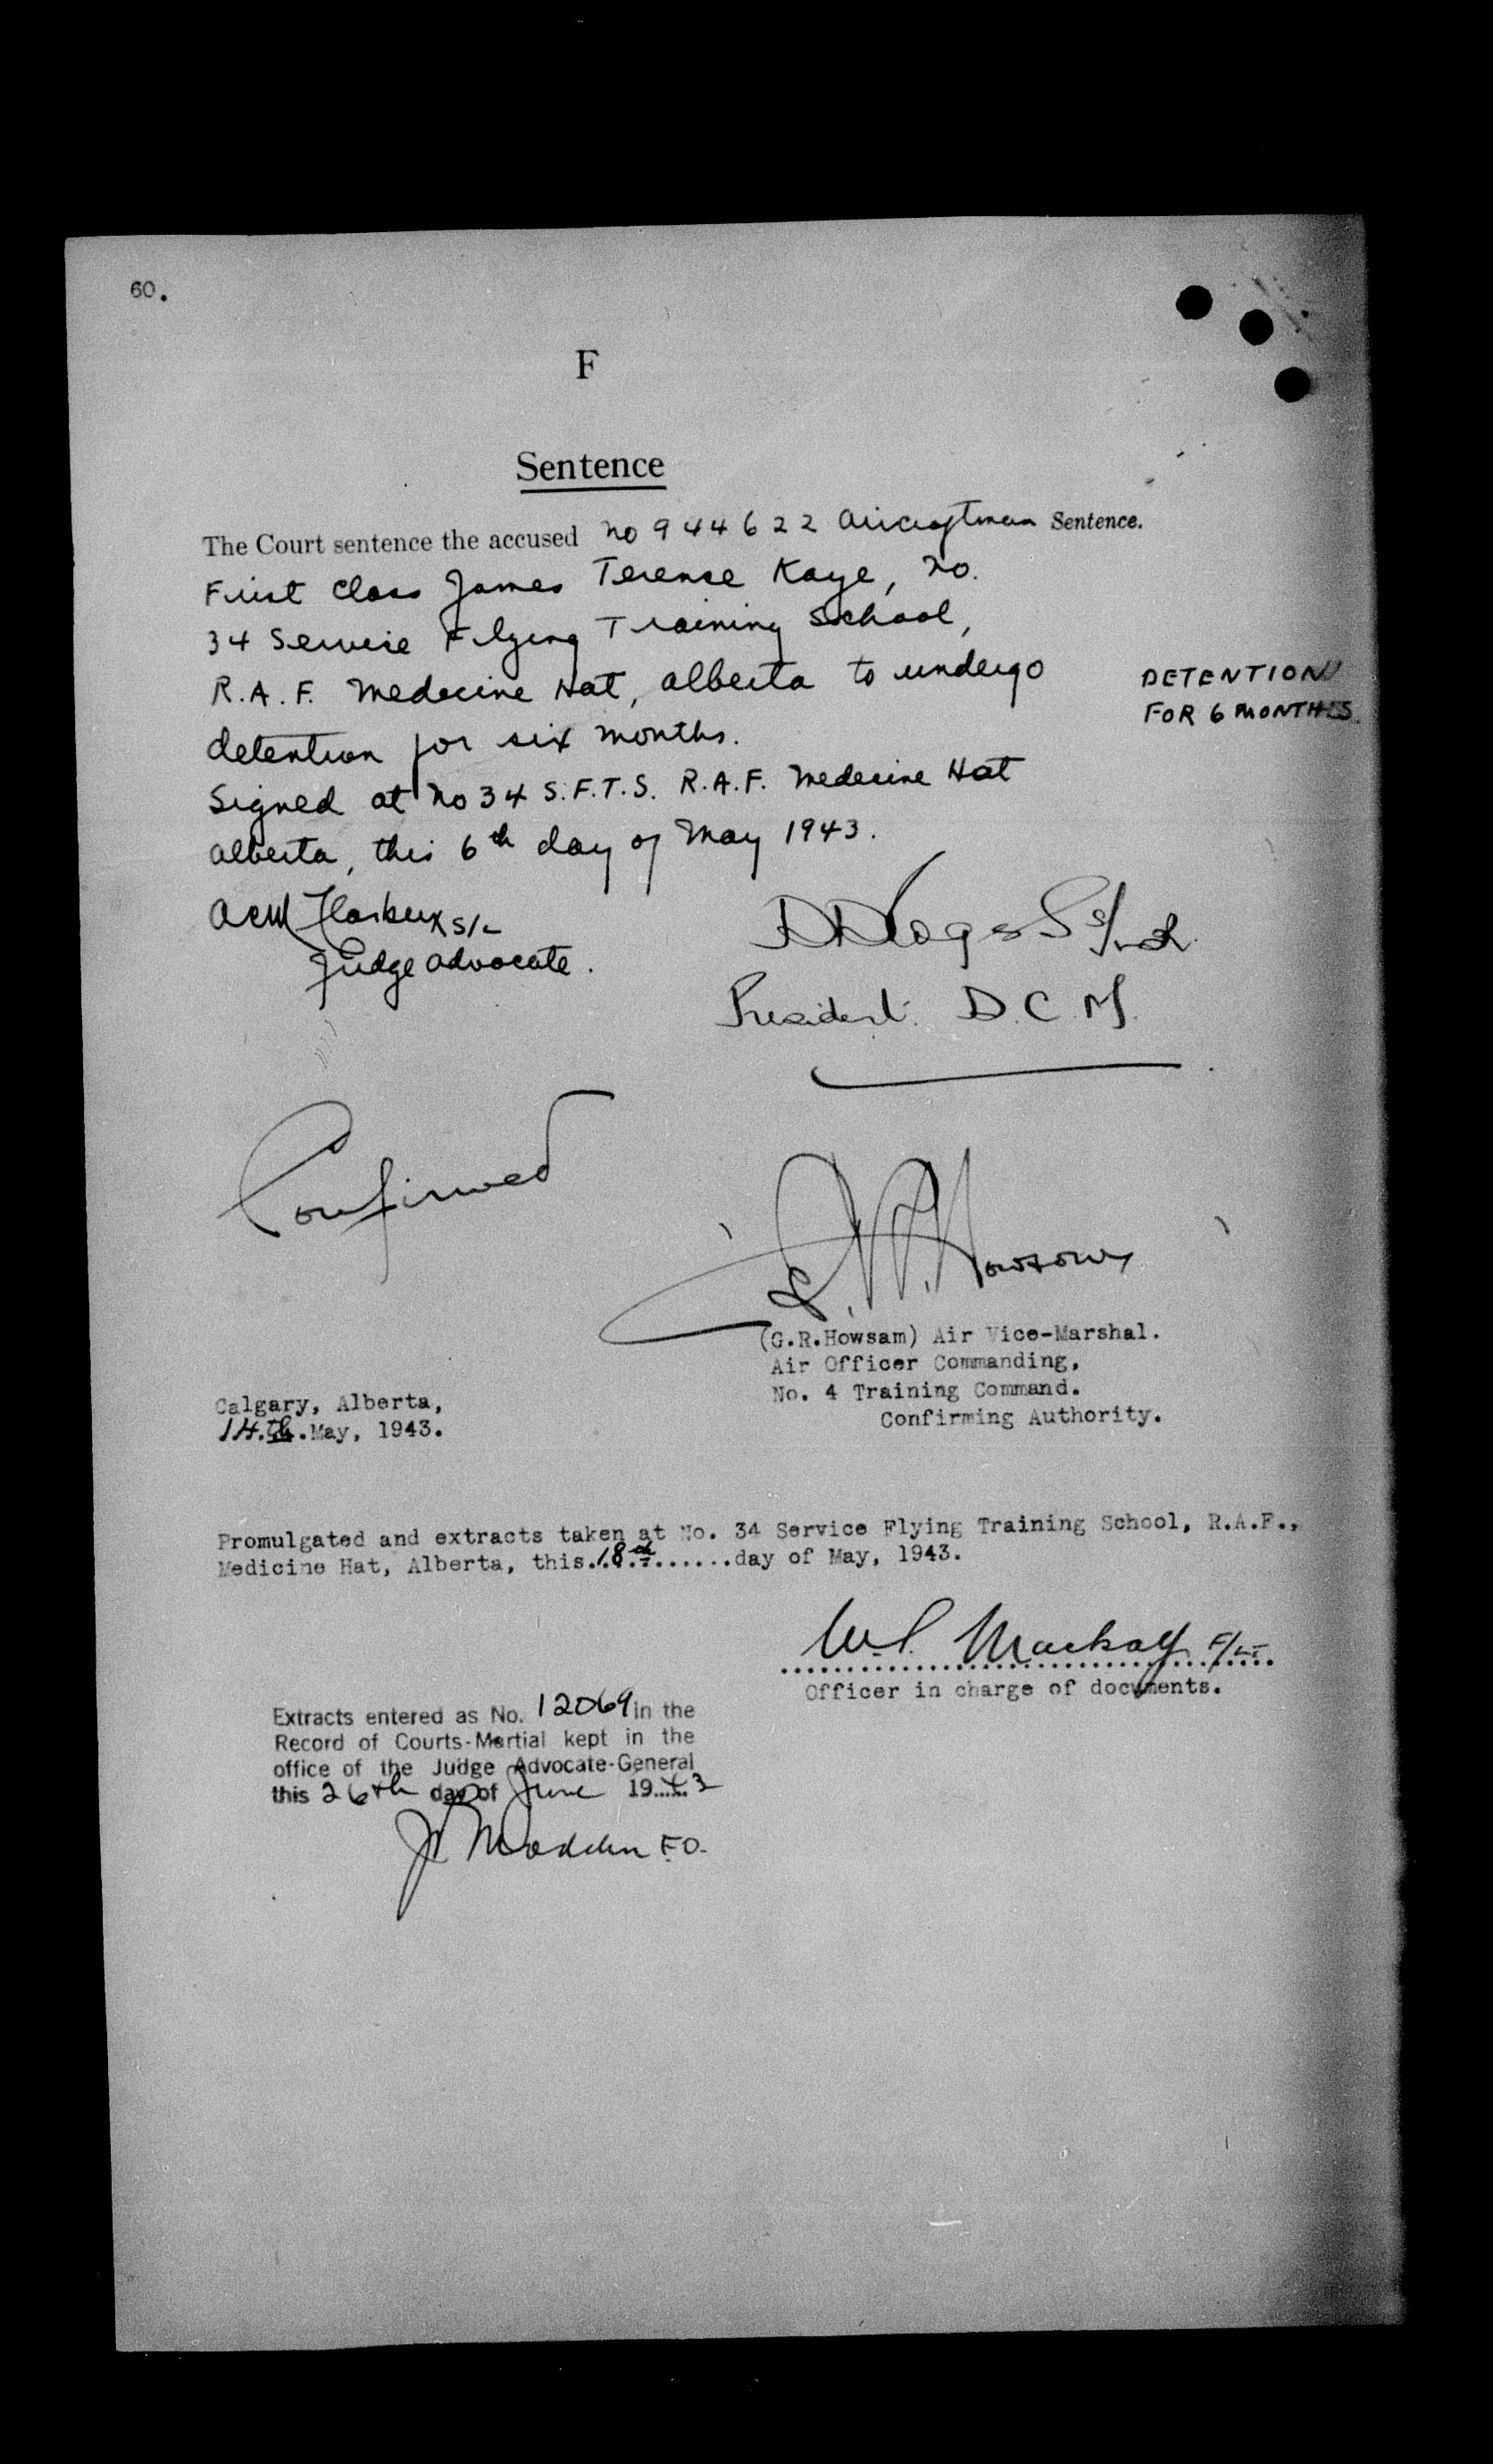 60.
F
Sentence
The Court sentence the accused No 944622 Aircraftman Sentence.
First Class James Terense Kaye, No.
34 Service Flying Training School,
R.A.F. Medecine Hat, Alberta to undergo
DETENTION
FOR 6 MONTHS.
detention for six months.
Signed at No 34 S.F.T.S. R.A.F. Medecine Hat
Alberta, this 6th day of May 1943.
S/L
Judge Advocate.
President D.C.M.
Confirmed
G.R. Howsam
(G.R.Howsam) Air Vice-Marshal.
Air Officer Commanding,
No. 4 Training Command.
Confirming Authority.
Calgary, Alberta,
14.th.May, 1943.
Promulgated and extracts taken at No. 34 Service Flying Training School, R.A.F.,
Medicine Hat, Alberta, this..18th.......day of May, 1943.
Mackay F/LT
Officer in charge of documents.
Extracts entered as No. 12069 in the
Record of Courts-Martial kept in the
office of the Judge Advocate-General
this 26th day of June 1943
Madden F.O.